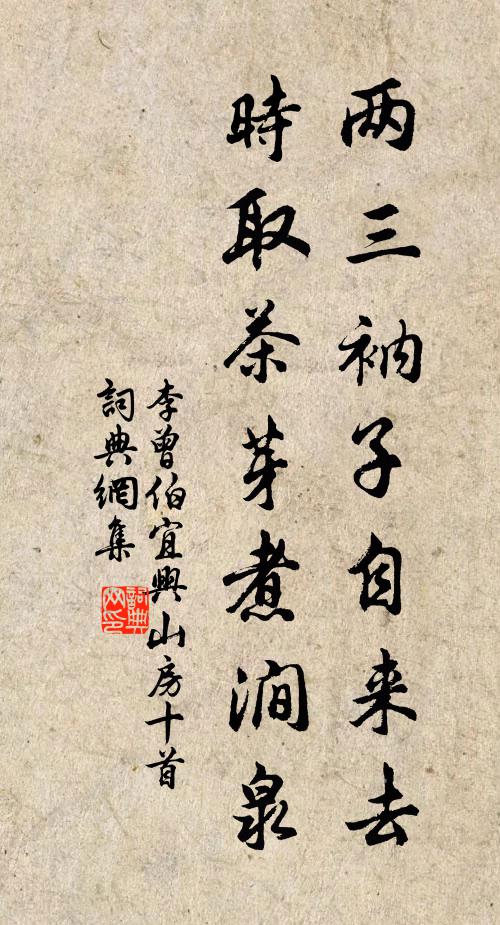 两三衲子自来去
時取茶芽煮澗泉
李曾伯宜興山房十首
詞典網集
詞典网印